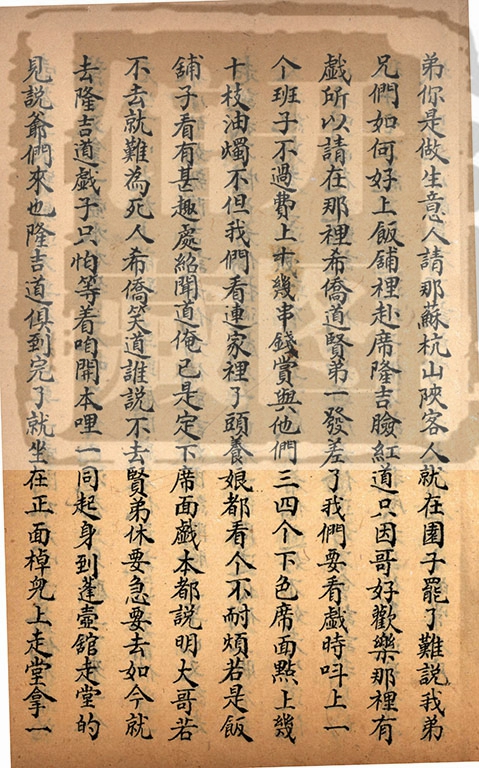 弟你是做生意人請那蘇杭山陝客人就在園子罷了難說我弟
兄們如何好上飯舖裡赴席隆吉臉紅道只因哥好歡樂那裡有
戲所以請在那裡希僑道賢弟一發差了我們要看戲時呌上一
个班子不過費上十幾串錢賞與他們三四个下色席面點上幾
十枝油燭不但我們看連家裡了頭養娘都看个不耐煩若是飯
舖子看有甚趣處紹聞道俺已是定下席面戲本都說明大哥若
不去就難為死人希僑笑道誰說不去賢弟休要急要去如今就
去隆吉道戲子只怕等着咱開本哩一同起身到蓬壺舘走堂的
見說爺們來也隆吉道俱到完了就坐在正面棹兒上走堂拿一